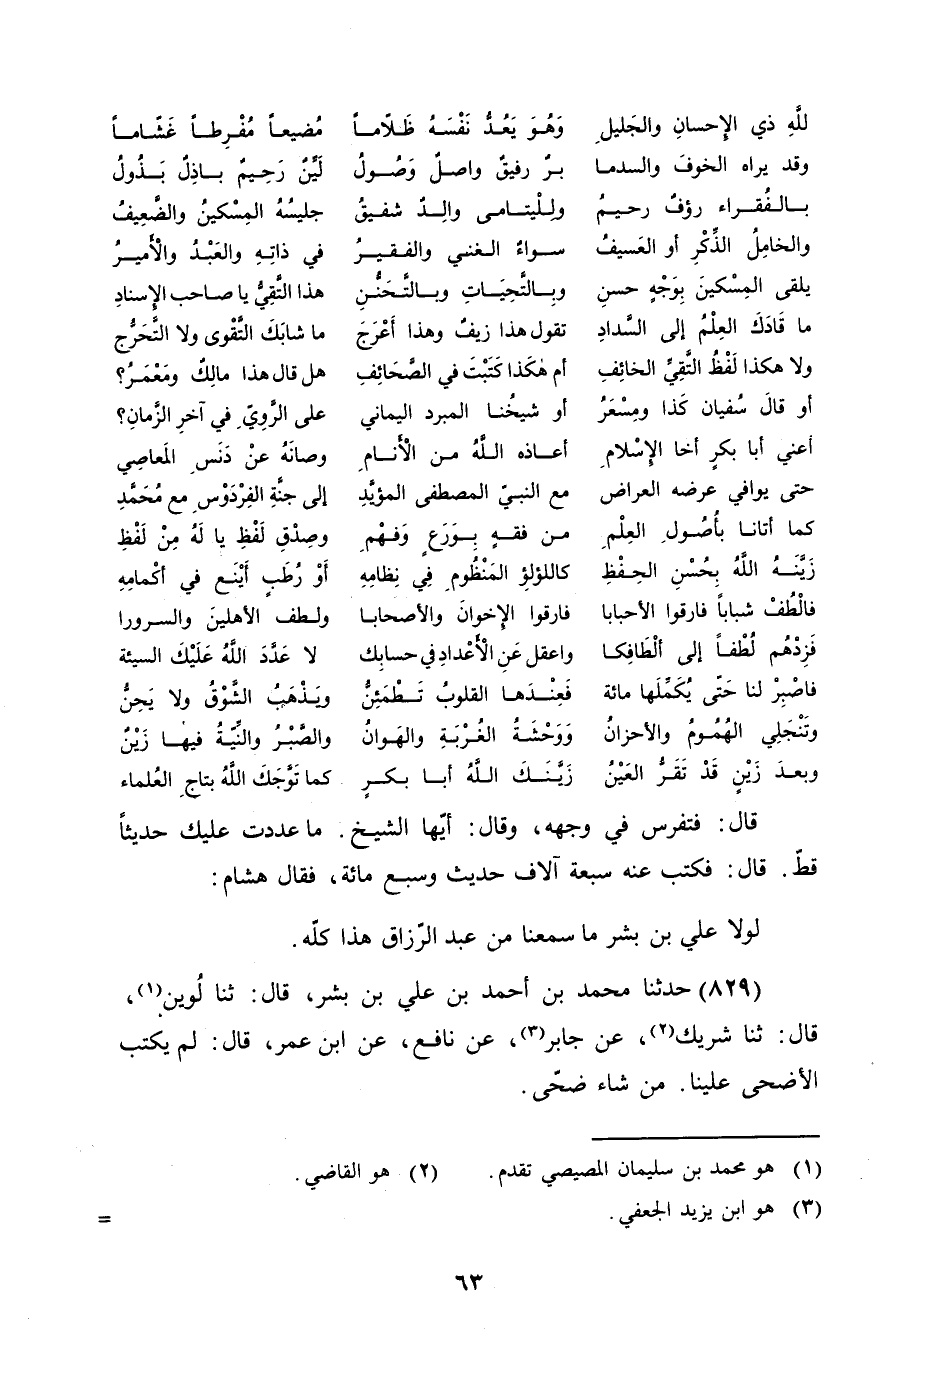 للَّهِ ذي الإحسانِ والجَليلِ وَهُوَ يَعُدُّ نَفْسَهُ ظَلَّاماً مُضيعاً مُفْرِطاً غَشَّاماً
وقد يراه الخوفَ والسدما بـرٌ رفيقٌ واصلٌ وَصُولُ لَيِّنٌ رَحِيمٌ باذِلٌ بَذُولُ
بالفُقراء رؤفٌ رحيمُ ولليتامى والدٌ شفيقُ جليسُهُ المِسْكينُ والضَّعِيفُ
والخامِلُ الذِّكْرِ أو العَسيفُ سواءٌ الغني والفقيرُ في ذاتِهِ والعَبْدُ والأَميرُ
يلقى المِسْكينَ بِوَجْهٍ حسنِ وبالتَّحِيَّاتِ وبالتَّحَنُّنِ هذا التَّقِيُّ يا صاحب الإسنادِ
ما قَادَكَ العِلْمُ إلى السَّدادِ تقول هذا زيفٌ وهذا أَعْرَجَ ما شابَكَ التَّقْوى ولا التَّحَرُّج
ولا هكذا لَفْظُ التَّقِيِّ الخائِفِ أم هٰكَذا كَتَبْتَ في الصَّحَائِفِ هل قال هذا مالِكٌ ومَعْمَرُ؟
أو قالَ سُفيان كَذا ومِسْعَرُ أو شيخُنا المبرد اليماني على الرَّوِيّ في آخرِ الزَّمانِ؟
أعني أبا بكرٍ أخا الإسْلامِ أعاذه اللَّهُ من الأَنامِ وصانَهُ عنْ دَنَسِ المَعاصِي
حتى يوافي عرضه العراض مع النبيّ المصطفى المؤيَّدِ إلى جنَّةِ الفِرْدَوْسِ مع مُحَمَّدِ
كما أتانا بأُصُولِ العِلْمِ من فقهٍ بِوَرَعٍ وَفَهْمِ وصِدْقِ لَفْظٍ يا لَهُ مِنْ لَفْظِ
زَيَّنَهُ اللَّهُ بِحُسْنِ الحفظِ كاللؤلؤ المَنْظُومِ فِي نِظامِهِ أوْ رُطَبٍ أَيْنَعَ في أكْمامِهِ
فالْطُفْ شباباً فارقوا الأحبابا فارقوا الإخوانَ والأصحابا ولطف الأهلينَ والسرورا
فَزِدْهُم لُطْفاً إلى ألْطَافِكا واعقل عَنِ الأَعْدادِ في حسابِك لا عَدَّدَ اللَّهُ عَلَيْكَ السيئة
فاصْبِرْ لنا حَتّى يُكَمِّلَها مائة فَعِنْدَها القلوبُ تَطْمَئِنُّ ويَذْهَبُ الشَّوْقُ ولا يَحِنُّ
وتَنْجَلِي الهُمُومُ والأحزانُ وَوَحْشَةُ الغُرْبَةِ والهَوانُ والصَّبْرُ والنِّيَّةُ فيها زَيْنٌ
وبعدَ زَيْنٍ قَدْ تَقَرُّ العَيْنُ زَيَّنَكَ اللَّهُ أبا بكرٍ كما تَوَّجَكَ اللَّهُ بتاجِ العُلماء
قال: فتفرس في وجهه، وقال: أيّها الشيخ. ما عددت عليك حديثاً
قطّ. قال: فكتب عنه سبعة آلاف حديث وسبع مائة، فقال هشام:
لولا علي بن بشر ما سمعنا من عبد الرّزاق هذا كلّه.
(٨٢٩) حدثنا محمد بن أحمد بن علي بن بشر، قال: ثنا لُوين(١)،
قال: ثنا شريك(٢)، عن جابر(٣)، عن نافع، عن ابن عمر، قال: لم يكتب
الأضحى علينا. من شاء ضحّى.
(١) هو محمد بن سليمان المصيصي تقدم. (٢) هو القاضي.
(٣) هو ابن يزيد الجعفي. =
٦٣